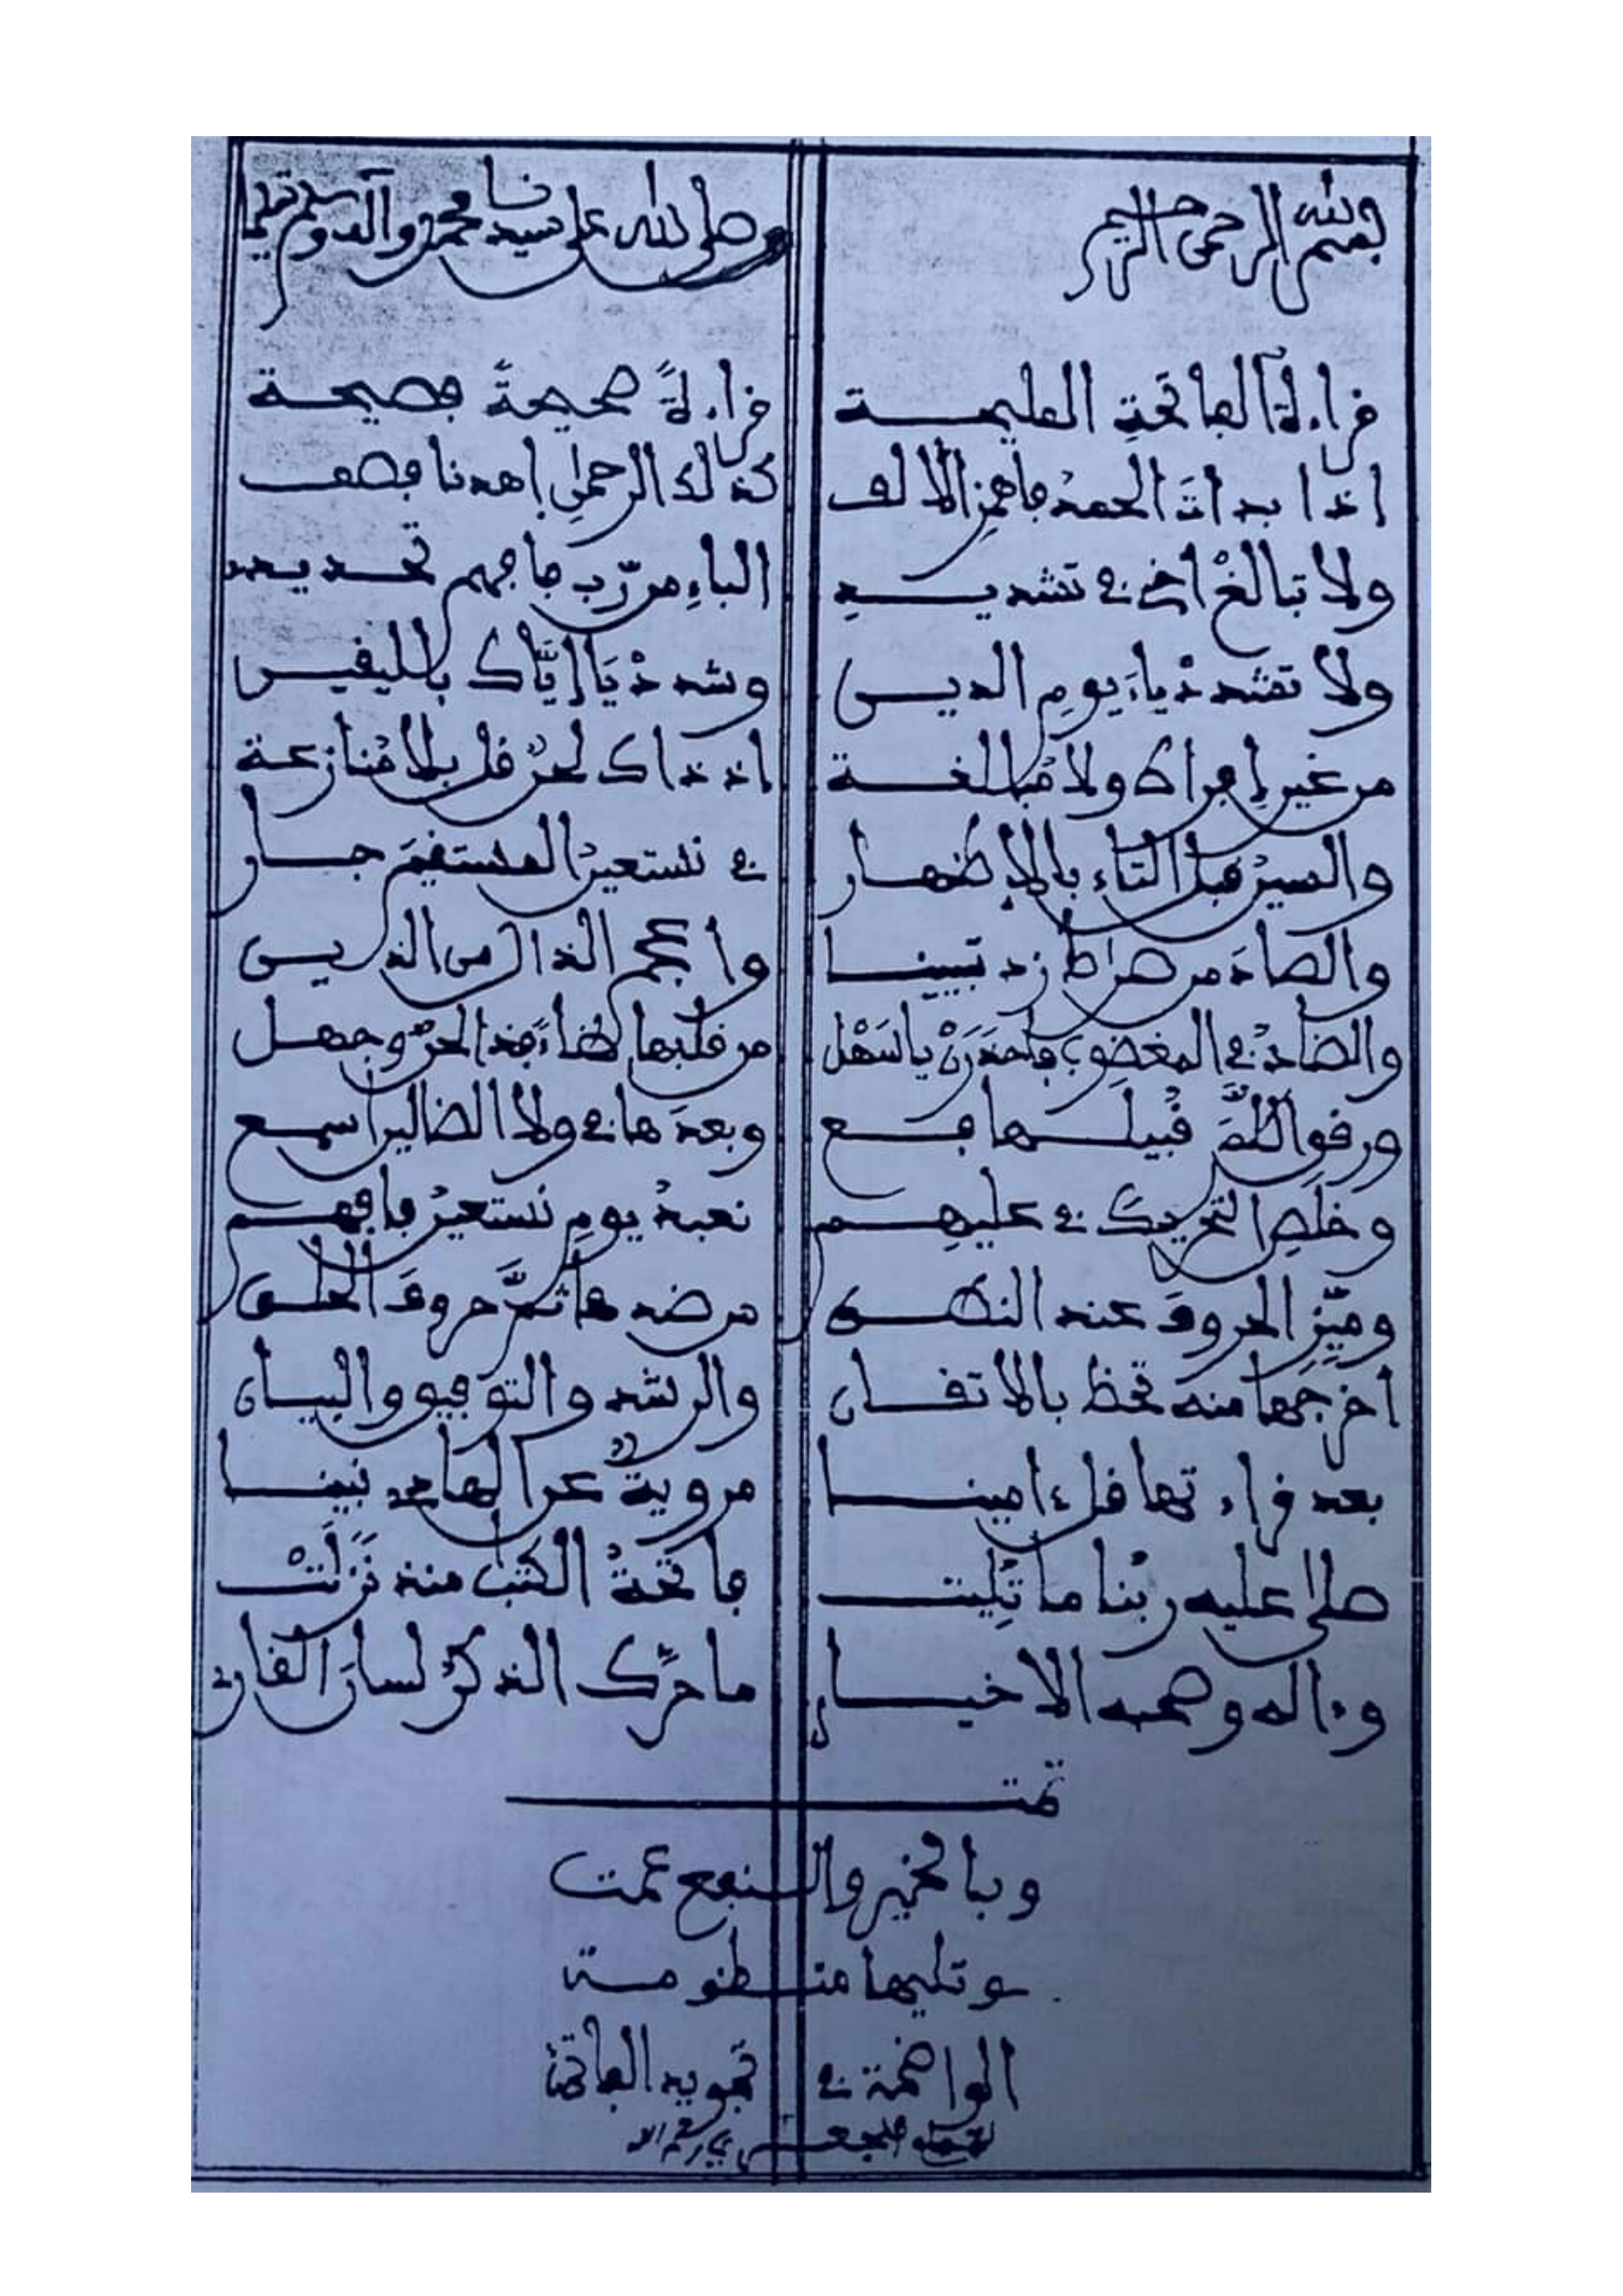 بسم الله الرحمن الرحيم وصلى الله على سيدنا محمد وآله وسلم تسليما
قراءة الفاتحة المليحة قراءة صحيحة فصيحة
اذا بدات الحمد فاهمز الالف كذلك الرحمن اهدنا فصف
ولا تبالغ أخي في تشديد الباء من رب فافهم تحديد
ولا تشدد ياء يوم الدين وشدد يا إياك باليقين
من غير إفراط ولا مبالغة اذ ذاك لحن قل بلا منازعة
والسين قبل التاء بالإظهار في نستعين المستقيم جار
والصاد من صراط زد تبيينا واعجم الذال من الذين
والضاد في المغضوب فاحذرن يا سهل من قلبها ظاء فذا لحن وجهل
ورقق اللام قبيلها فع وبعدها في ولا الضالين اسمع
وخلص التحريك في عليهم نعبد يوم نستعين فافهم
وميز الحروف عند النطق من ضدها ثم حروف الحلق
اخرجها منه تحظ بالاتقان والرشد والتوفيق والبيان
بعد قراءتها قل ءامينا مروية عن الهادي نبينا
صلى عليه ربنا ما تليت فاتحة الكتب منذ نزلت
وءاله وصحبه الاخيار ما حرك الذكر لسان القاري
تمت
وبالخير والنفع عمت
وتليها منظومة
الواضحة في تجويد الفاتحة
للجعبري رحمه الله